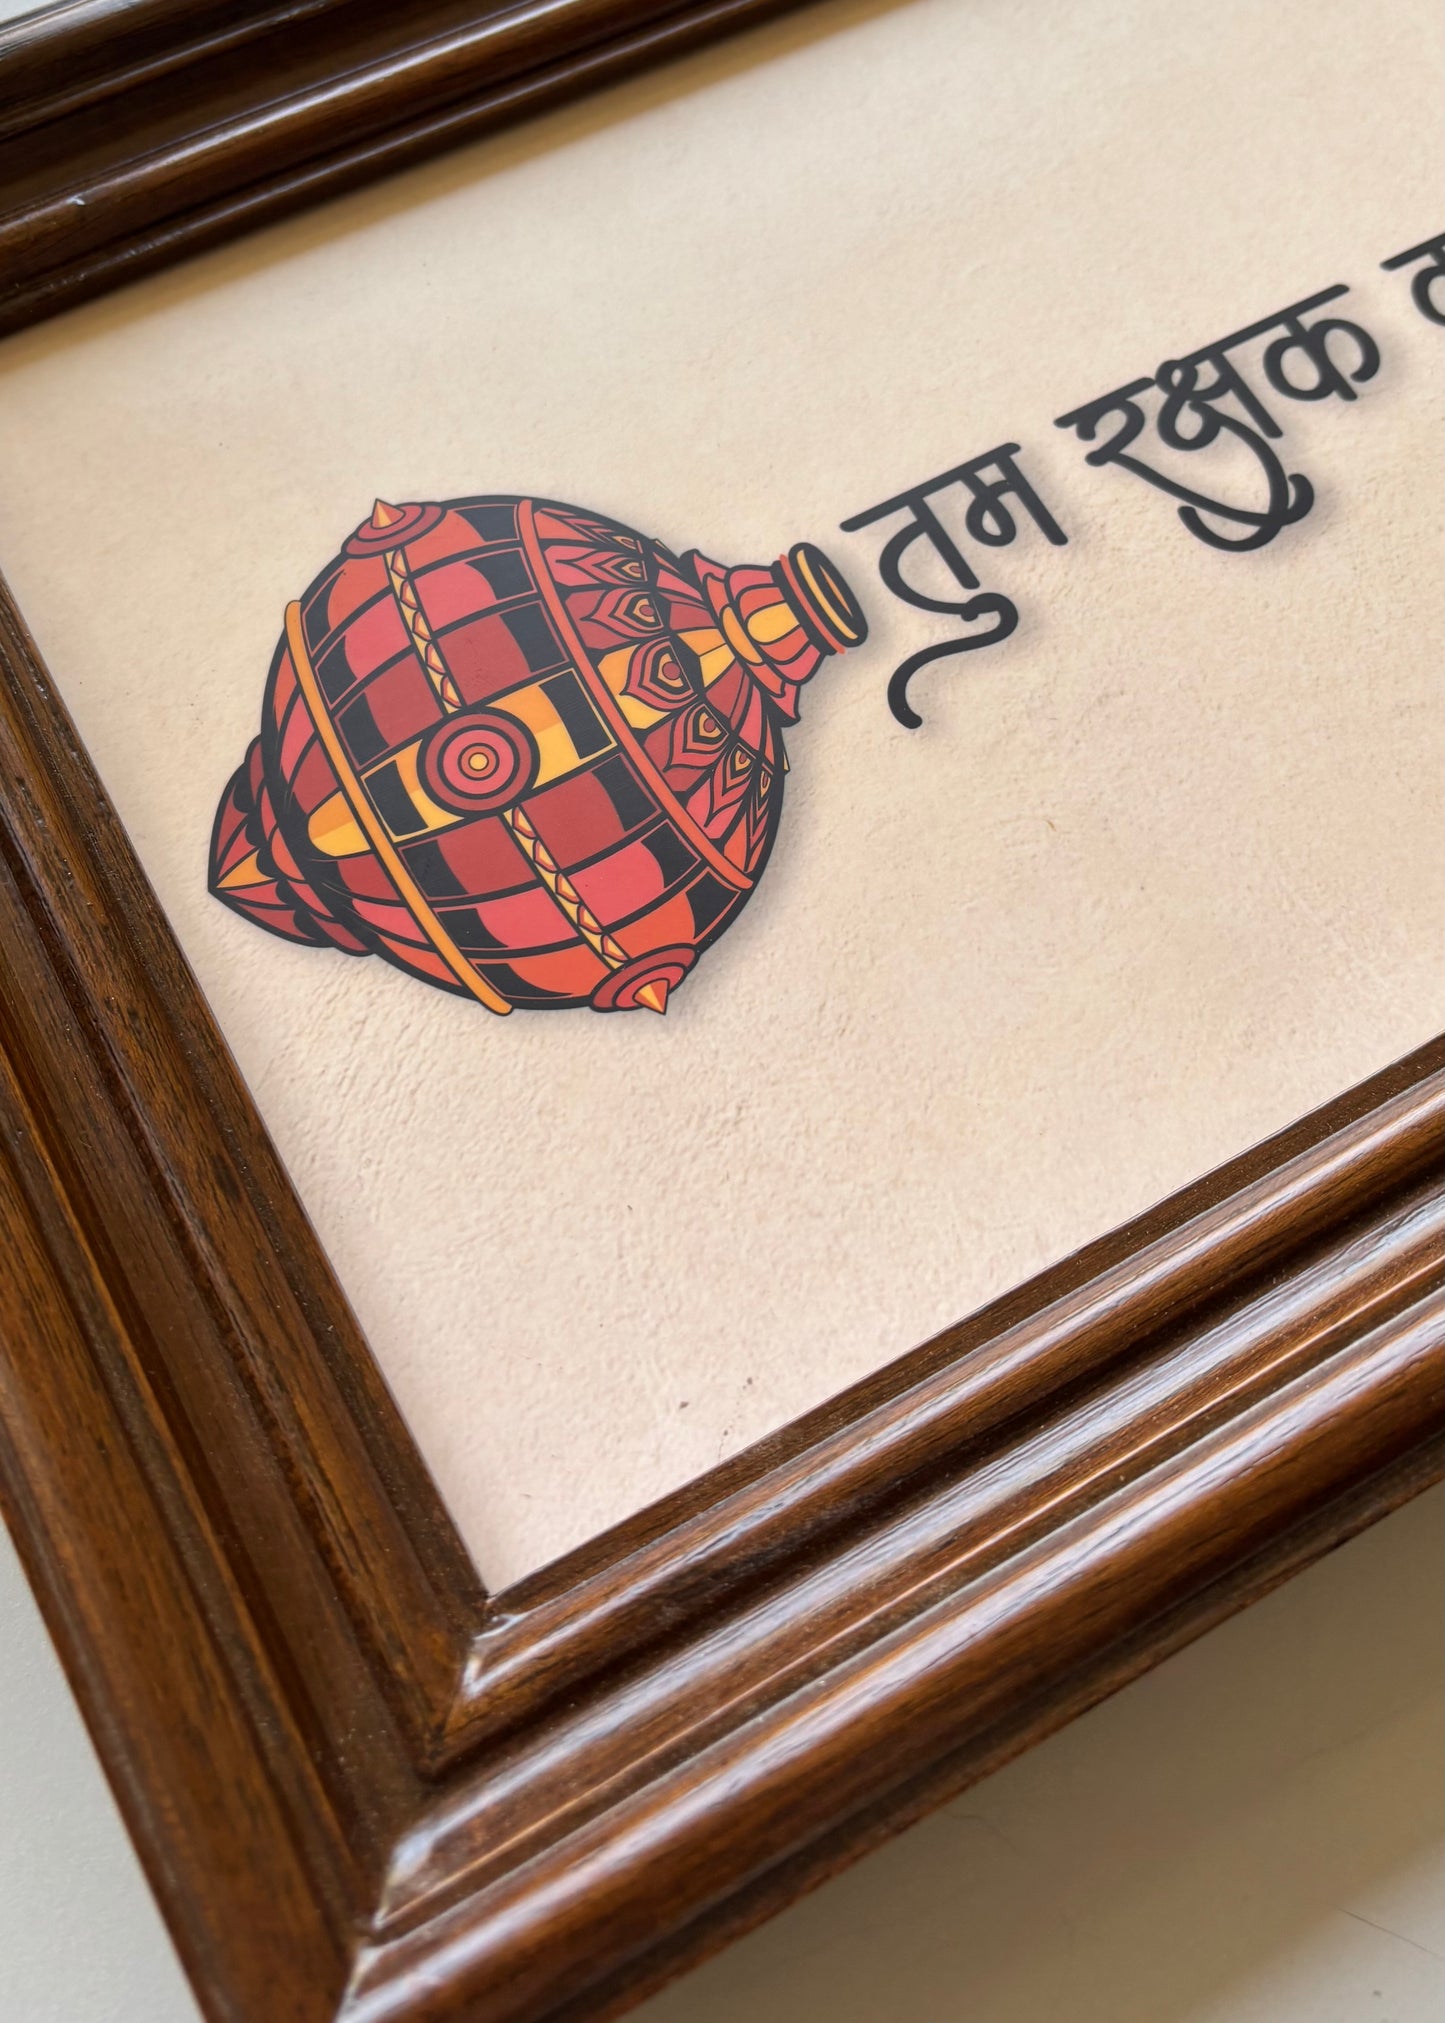 तुम रक्षक